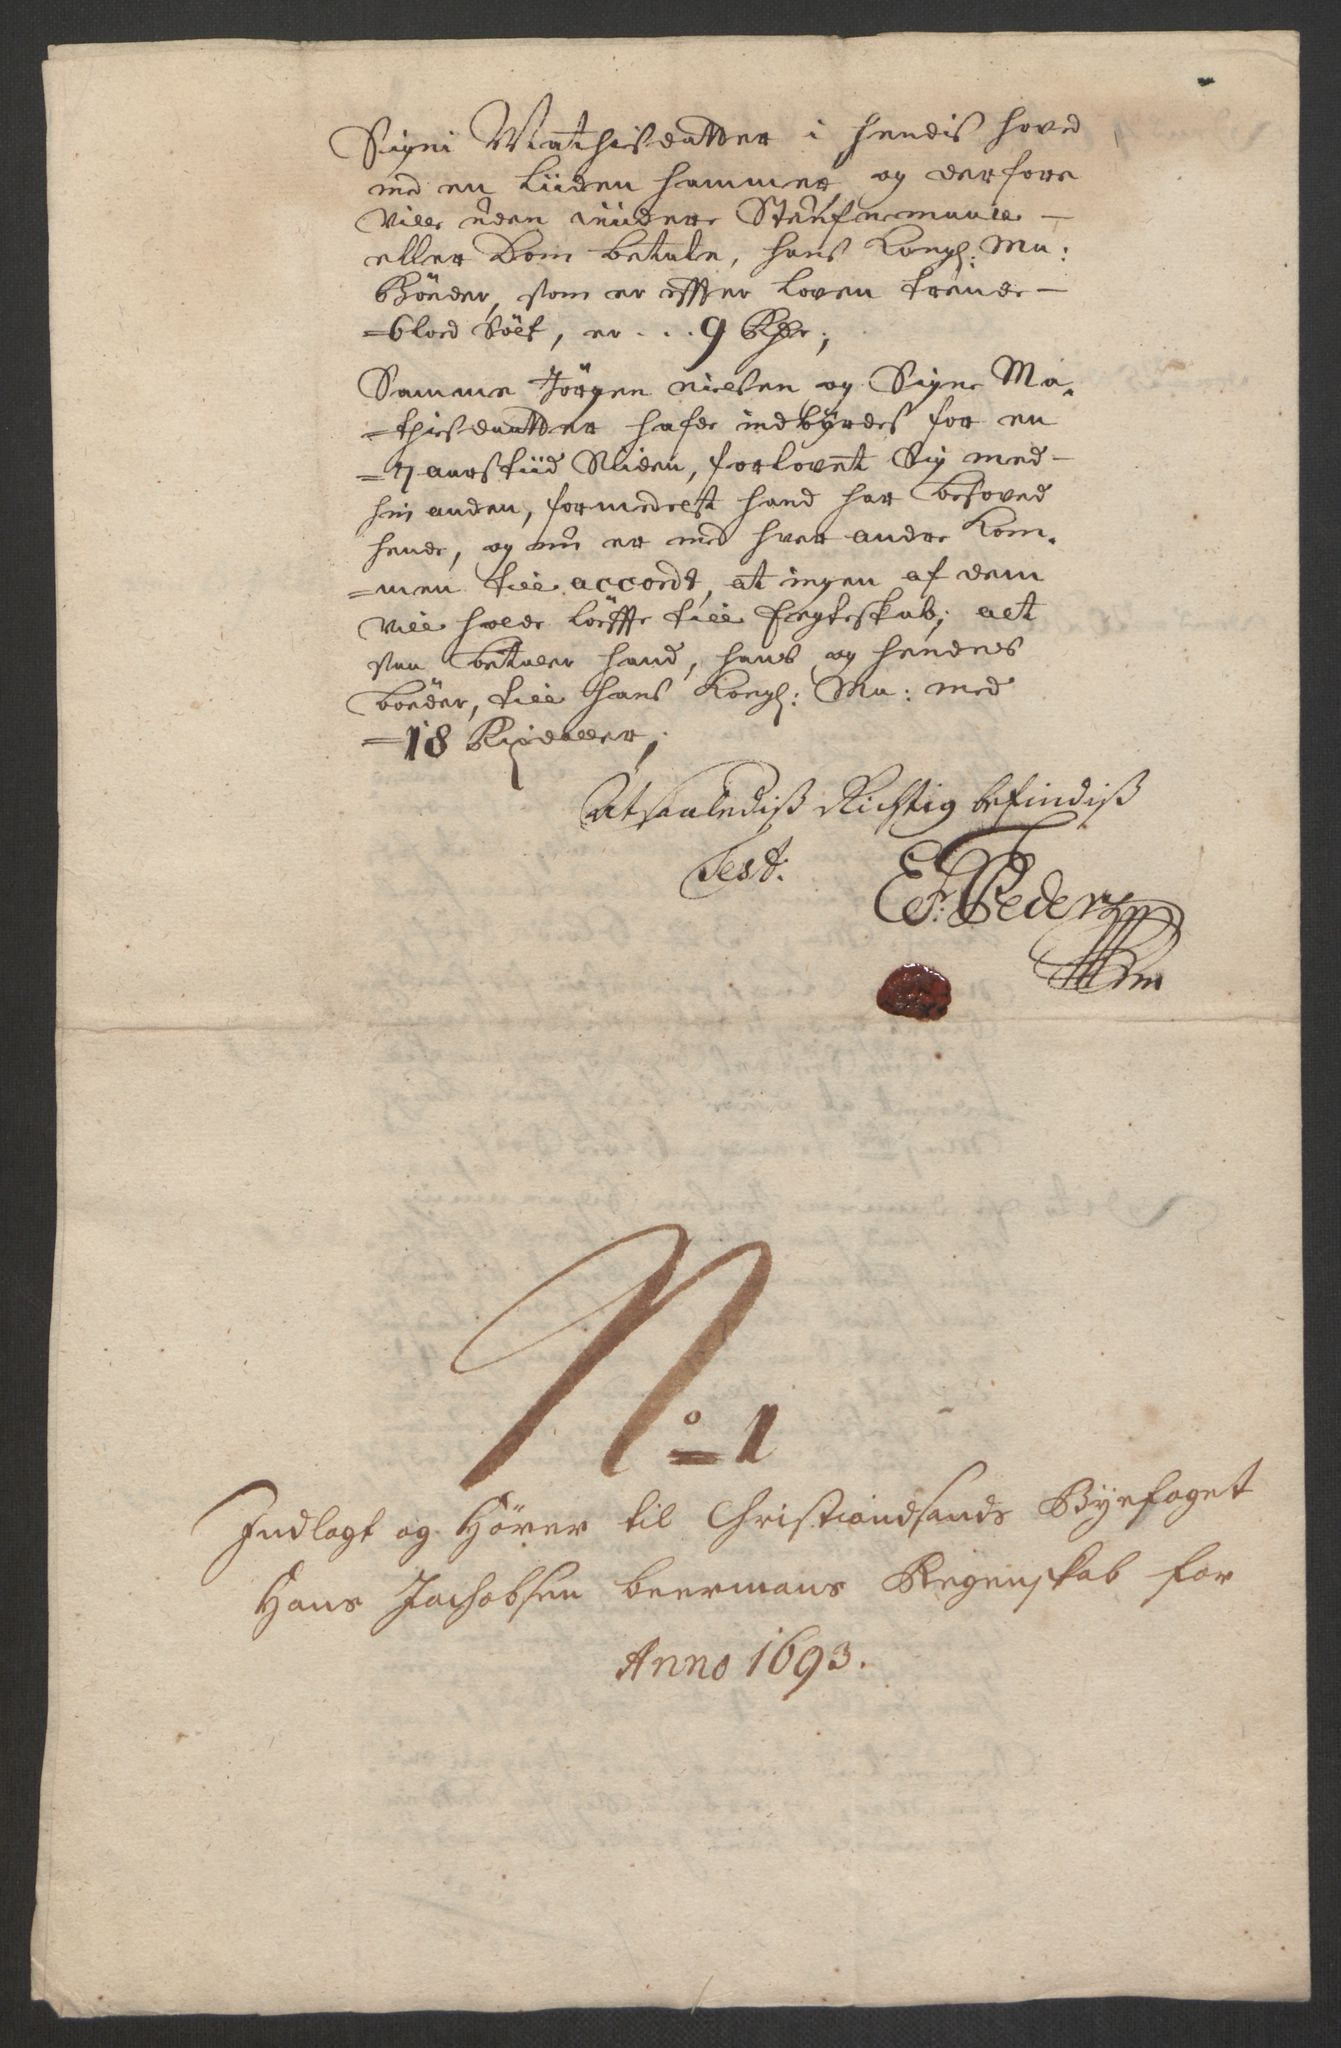 Signi Mathisdatter i hendis hoved
med en liiden hammer, og derfore
ville uden viidere Steufnemaall –
eller Dom betale, hans Kongl: Ma:
Böeder, som er effter loven trende –
=blod Sölf, er . . . 9 Rdr;
Samme Jörgen Nielsen og Signe Ma=
=thisdaatter hafde indbÿrdes for en
=7 aarstiid Siden, forlovet Sig med –
hin anden, formedelst hand har besoved
hende, og nu er med hver andre Kom=
=men till accordt, at ingen af dem
vill holde löffte till Ecgteskab; alt
saa betaler hand, hans og hendes
böeder, till hans Kongl: Ma: med
=18 Rixdaller;
At saalediß Richtig befindiß
Test.
E. Pederßen
Mm
No 1
Indlagt og Hörer til Christiandsands Byefoget
Hans Jachobsen beermans Regenskab for
Anno 1693.